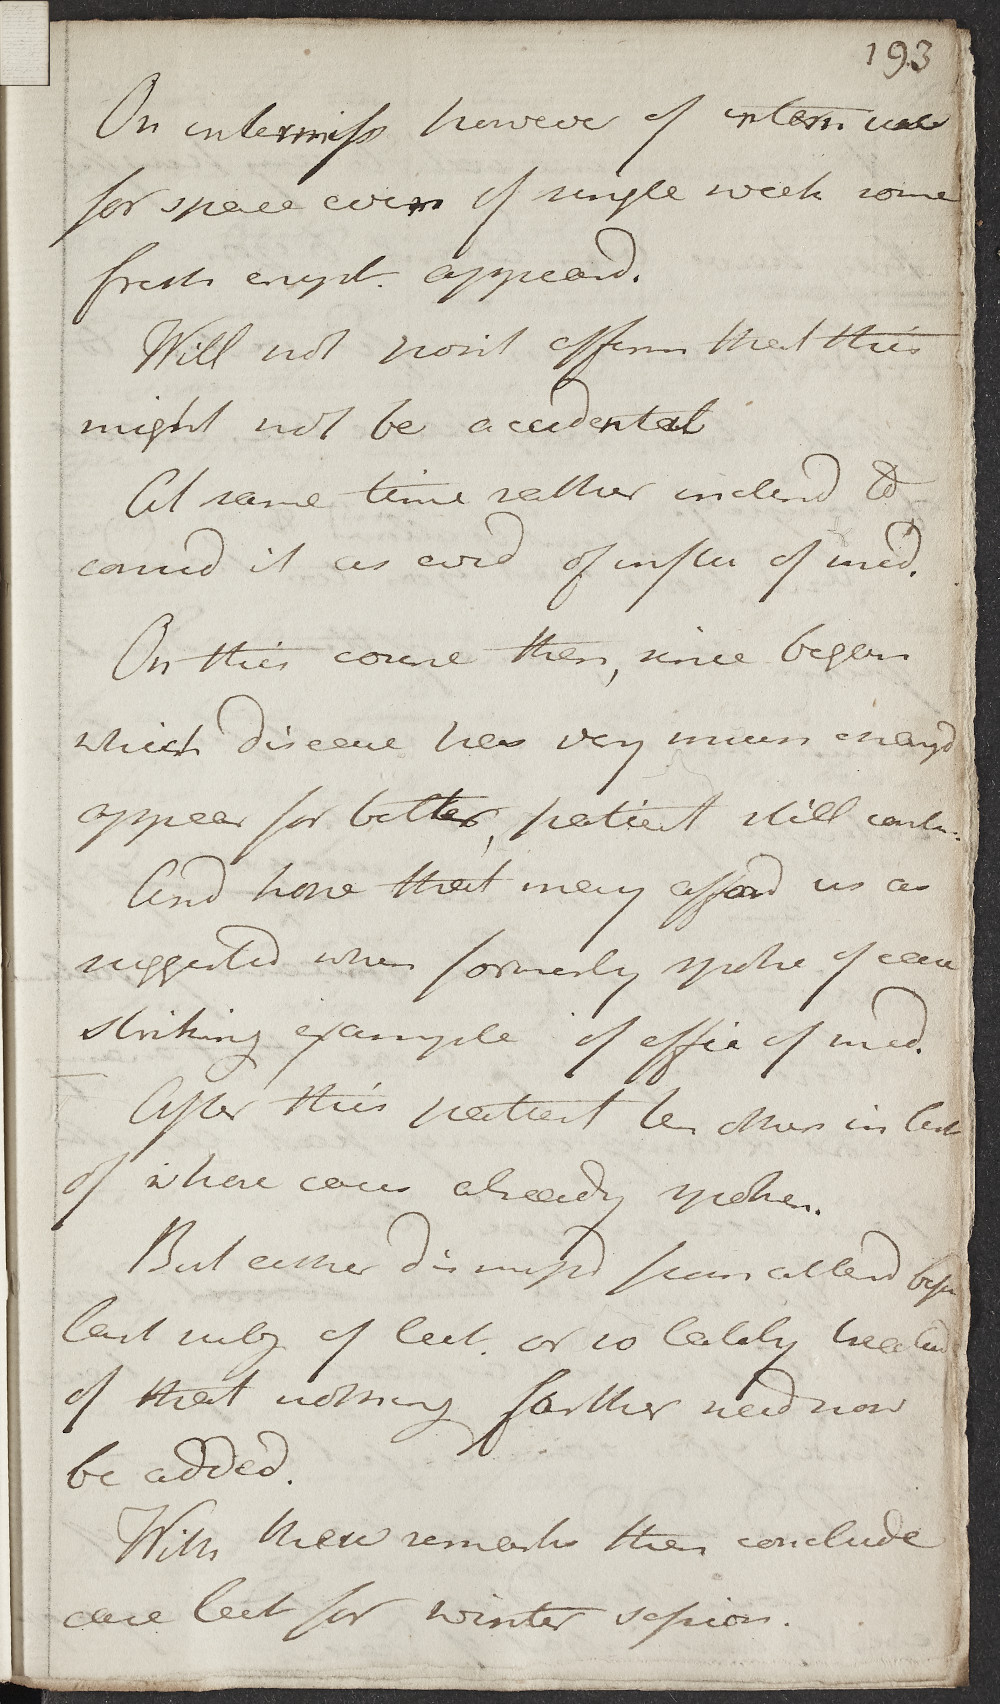 193
On intermiss however of intern use
for space even of single week some
fresh erupt. appeard.
Will not posit affirm that this
might not be accidental
At same time rather inclend to
consid it as evid of influ of med.
On this course then, since began
which disease has very much changd
appear for better, patient still contin.
And hope that may afford us as
suggested when formerly spoke of case
striking example of effic of med.
After this patient ten others in list
of whose cases already spoken.
But either dismissd from attend befor
last subj of lect. or so lately treated
of that nothing farther need now
be added.
With these remarks then conclude
case lect for winter session.